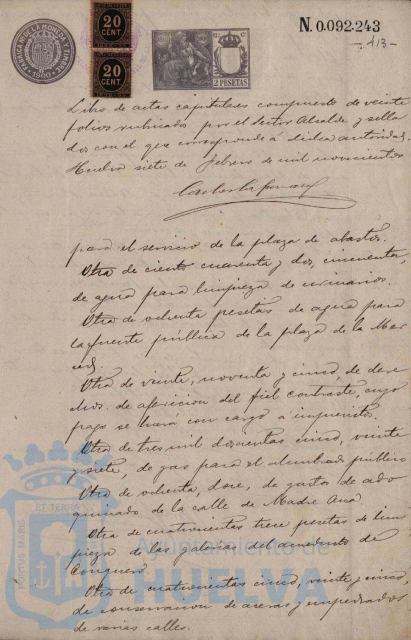 N. 0.092.243
- 413 -
FABRICA DE LA MONEDA Y TIMBRE
1900
20
CENT
20
CENT
2 PESETAS
Libro de actas capitulares compuesto de veinte
folios rubricados por el Señor Alcalde y sella
dos con el que corresponde á dicha autoridad.
Huelva siete de febrero de mil novecientos
para el servicio de la plaza de abastos.
Otra de ciento cuarenta y dos, cincuenta,
de agua para limpieza de urinarios.
Otra de ochenta pesetas de agua para
la fuente pública de la plaza de la Mer
ced.
Otra de veinte, noventa y cinco, de dere
chos de afericion del fiel contraste, cuyo
pago se hará con cargo a imprevistos.
Otra de tres mil doscientas cinco, veinte
y siete, de gas para el alumbrado público
Otra de ochenta, doce, de gastos de ado
quinado de la calle de Madre Ana
Otra de cuatrocientas trece pesetas de lim
pieza de las galerias del acueducto de
Conquero
Otra de cuatrocientas cinco, veinte y cinco,
de conservacion de aceras y empedrados
de varias calles.
PORTUS MARIS ET TERRAE
Ayuntamiento de
HUELVA